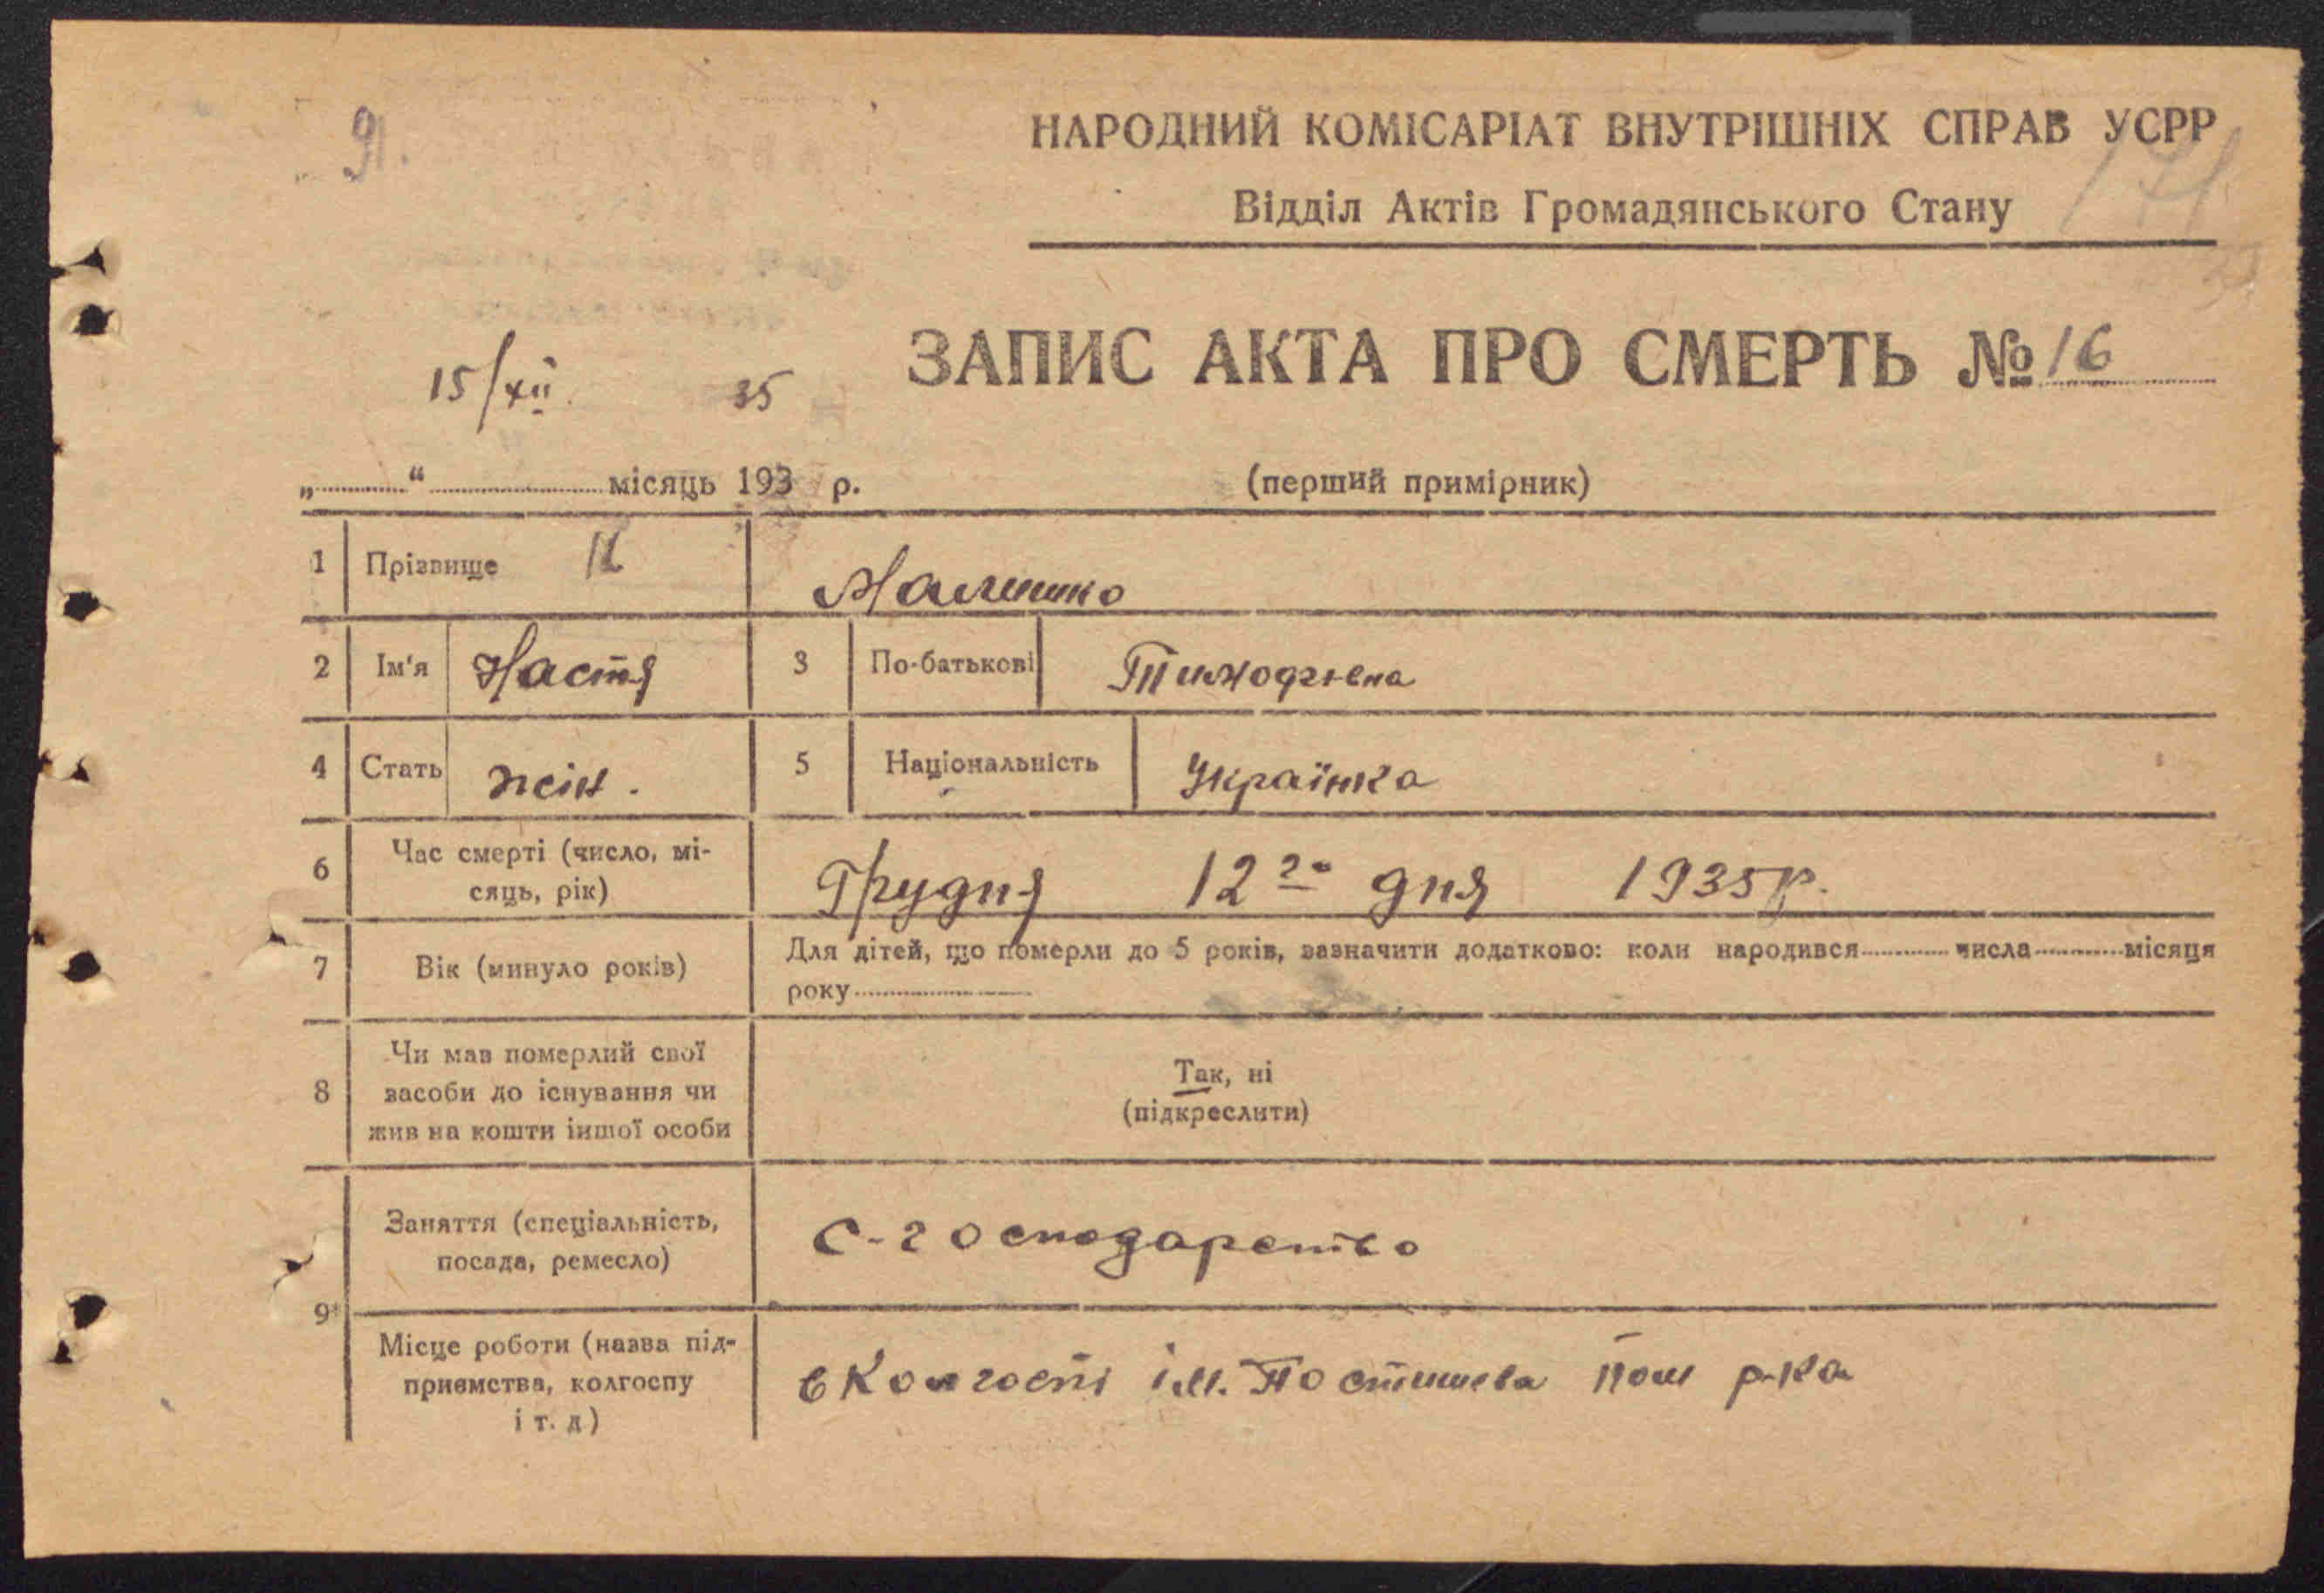 91.
НАРОДНИЙ КОМІСАРІАТ ВНУТРІШНІХ СПРАВ УСРР
Відділ Актів Громадянського Стану
ЗАПИС АКТА ПРО СМЕРТЬ № 16
15/XII 35
„ “ місяць 193 р.
(перший примірник)
1 Прізвище
2 Ім'я Настя 3 По-батькові
4 Стать жін. 5 Національність Українка
6 Час смерті (число, мі-
сяць, рік)
Грудня 12го дня 1935 р.
7 Вік (минуло років)
Для дітей, що померли до 5 років, зазначити додатково: коли народився числа місяця
року
8 Чи мав померлий свої
засоби до існування чи
жив на кошти іншої особи
Так, ні
(підкреслити)
9 Заняття (спеціальність,
посада, ремесло)
С-господарство
Місце роботи (назва під-
приємства, колгоспу
і т. д)
в Колгоспі ім. Постишева р-ка